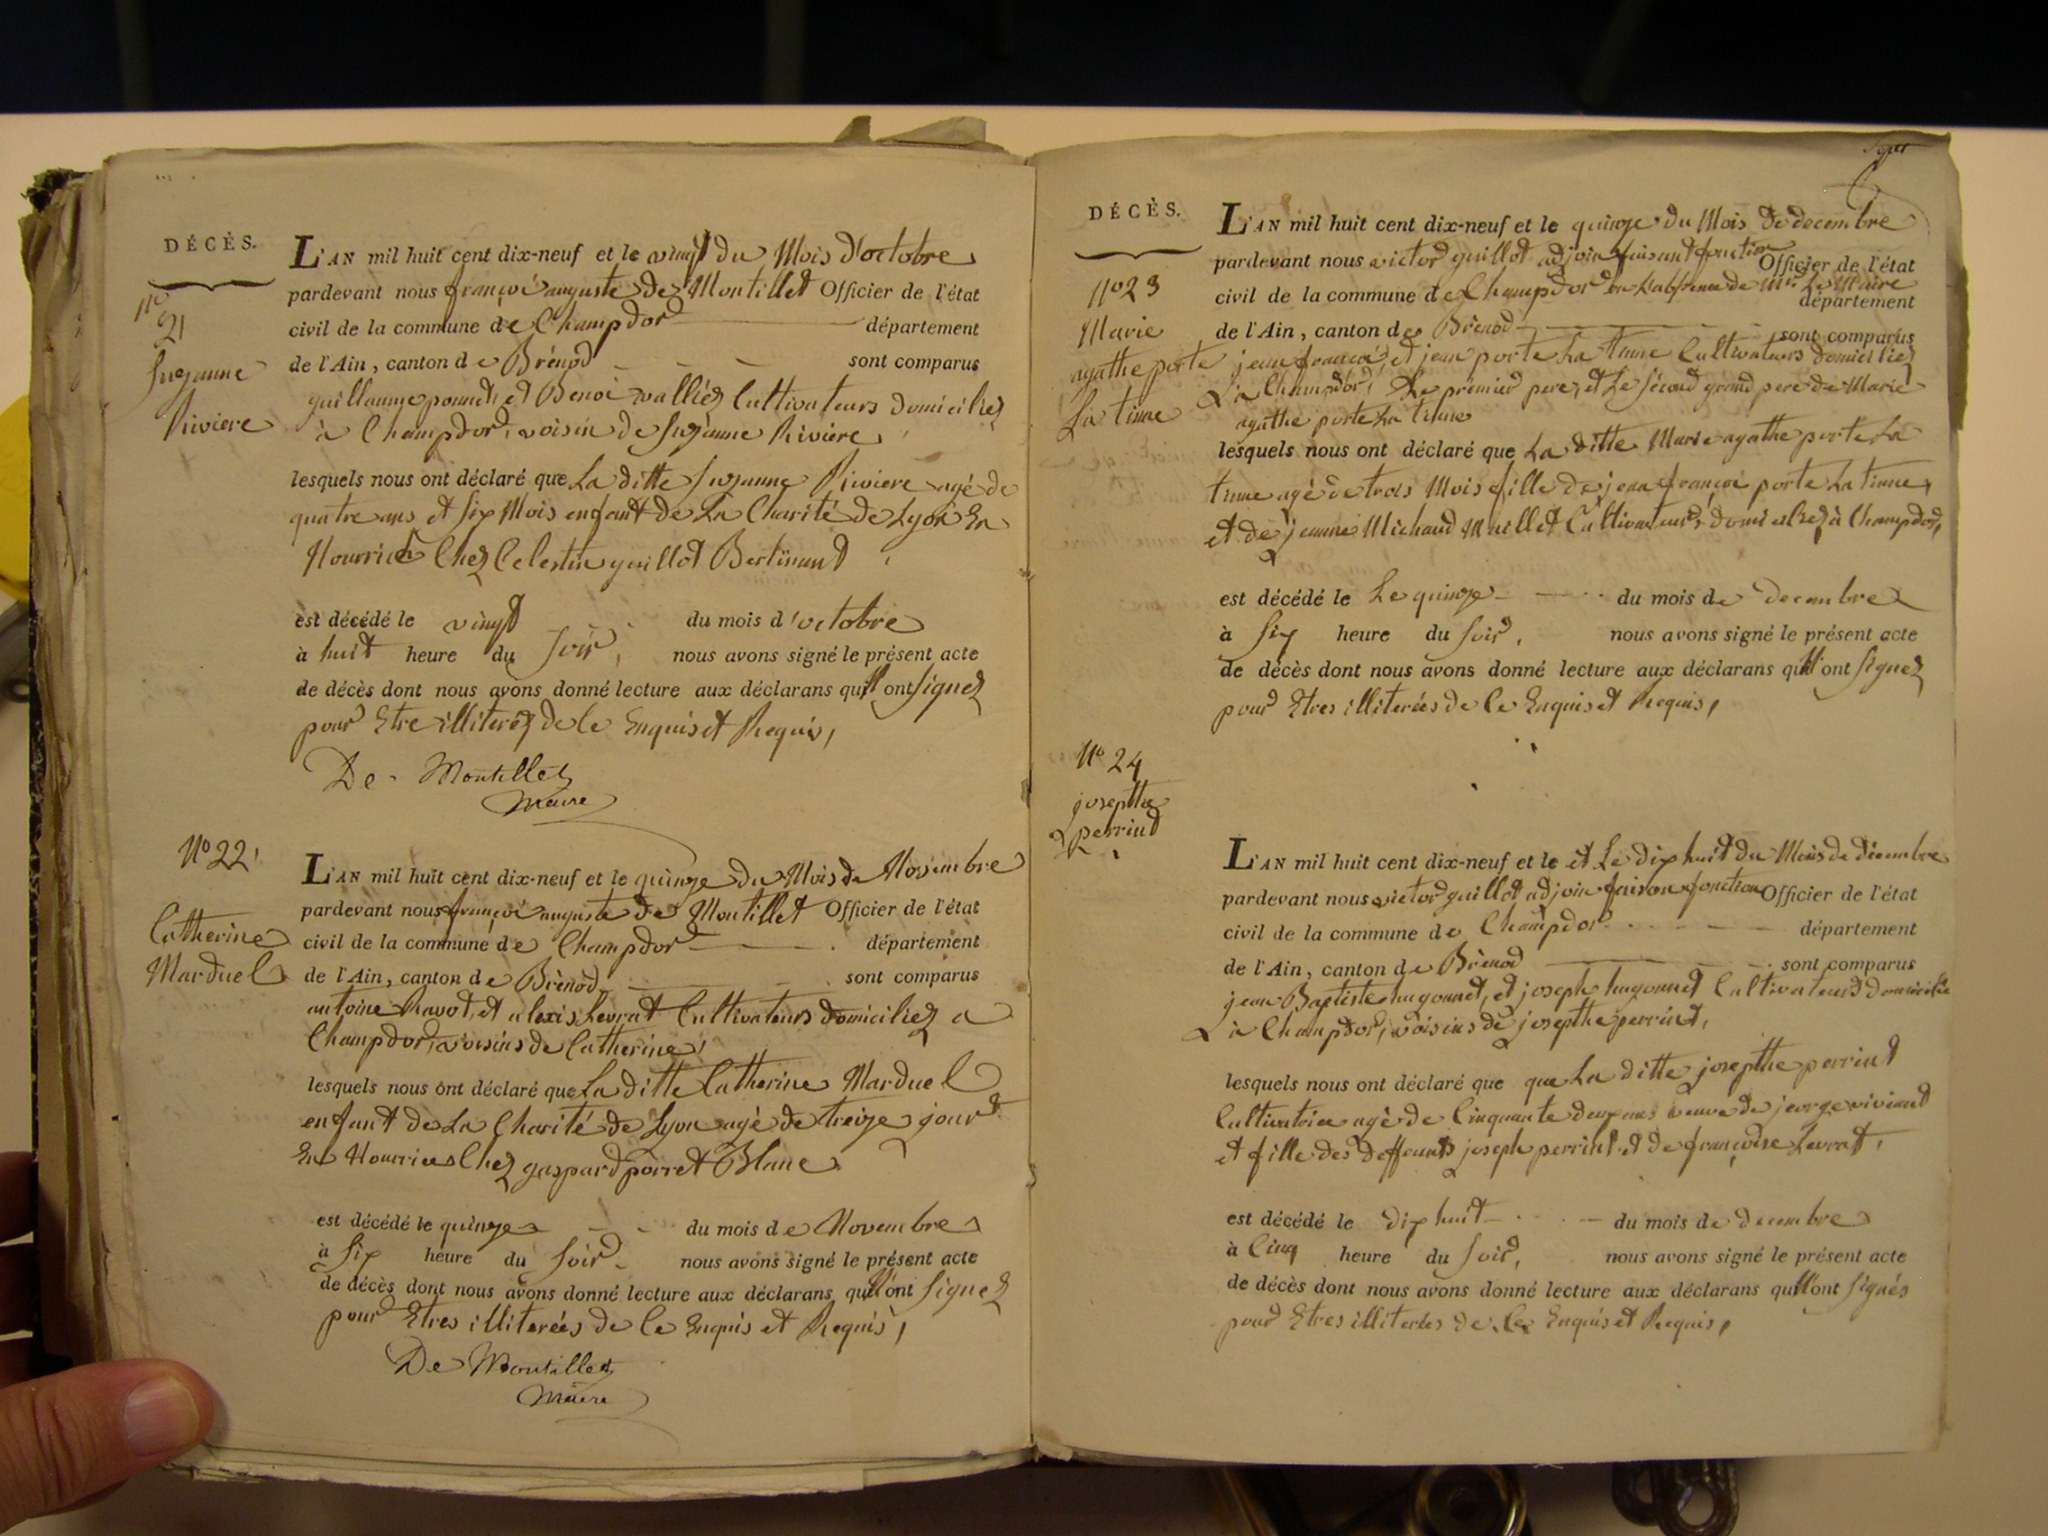 DÉCÈS.
N° 21
Suzanne
Riviere
L'AN mil huit cent dix-neuf et le vingt du Mois d'octobre
pardevant nous françoi auguste de Montillet Officier de l'état
civil de la commune de Champdor département
de l'Ain, canton de Brénod sont comparus
guillaume ponnet et Benoi vallier Cultivateurs domiciliez
à Champdor, voisin de Suzanne Riviere
lesquels nous ont déclaré que La ditte Suzanne Riviere agé de
quatre ans et Six Mois enfant de La Charité de Lyon En
Nourrice Chez Celestin guillot Bertinand
est décédé le vingt du mois d'octobre
à huit heure du Soir, nous avons signé le présent acte
de décès dont nous avons donné lecture aux déclarans qui n'ont signez
pour Etre illiterez de Ce Enquis et Requis,
De Montillet
Maire
N° 22
Catherine
Marduel
L'AN mil huit cent dix-neuf et le quinze du Mois de Novembre
pardevant nous françoi auguste de Montillet Officier de l'état
civil de la commune de Champdor département
de l'Ain, canton de Brénod sont comparus
antoine Ravot, et alexis Levrat Cultivateurs domiciliez a
Champdor, voisins de Catherine
lesquels nous ont déclaré que La ditte Catherine Marduel
enfant de La Charité de Lyon agé de treize jour
En Nourrice Chez gaspard porret Blanc
est décédé le quinze du mois de Novembre
à Six heure du Soir nous avons signé le présent acte
de décès dont nous avons donné lecture aux déclarans qui n'ont signez
pour Etres illiterées de Ce Enquis et Requis,
De Montillet
Maire
DÉCÈS.
N° 23
Marie
agathe porte
La tinne
L'AN mil huit cent dix-neuf et le quinze du Mois de decembre
pardevant nous victor guillot adjoin faisant fonction Officier de l'état
civil de la commune de Champdor en L'absence de Mr Le Maire département
de l'Ain, canton de Brénod sont comparus
jean françoi, et jean porte La tinne Cultivateurs domiciliez
à Champdor, Le premier pere, et Le Second grand pere de Marie
agathe porte La tinne
lesquels nous ont déclaré que La ditte Marie agathe porte La
tinne agé de trois Mois fille de jean françoi porte La tinne,
et de jeanne Michaud Muillet Cultivateurs domiciliez à Champdor,
est décédé le Le quinze du mois de decembre
à Six heure du Soir, nous avons signé le présent acte
de décès dont nous avons donné lecture aux déclarans qui n'ont Signez
pour Etres illiterées de Ce Enquis et Requis,
N° 24
josepthe
perrint
L'AN mil huit cent dix-neuf et le et Le dix huit du Mois de décembre
pardevant nous victor guillot adjoin faison fonction Officier de l'état
civil de la commune de Champdor département
de l'Ain, canton de Brénod sont comparus
jean Baptiste hugonnet, et joseph hugonnet Cultivateurs domicilié
à Champdor, voisins de josepthe perrint,
lesquels nous ont déclaré que que La ditte josepthe perrint
Cultivatrice agé de Cinquante deux ans veuve de jeorge viviand
et fille des deffeunts joseph perrint et de françoise Levrat,
est décédé le dix huit du mois de decembre
à Cinq heure du Soir, nous avons signé le présent acte
de décès dont nous avons donné lecture aux déclarans qui n'ont signés
pour Etres illiterées de Ce Enquis et Requis,